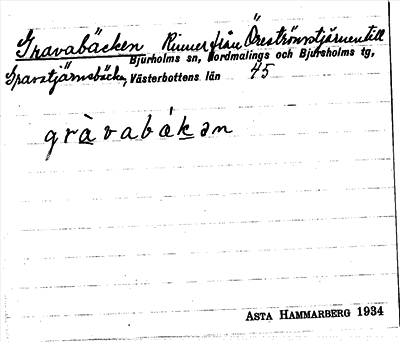 Gravabäcken Rinner från Öreströmstjärnen till
Bjurholms sn, Nordmalings och Bjurholms tg,
Sparstjärnsbäcken, Västerbottens län 45
gràvabákən
ASTA HAMMARBERG 1934